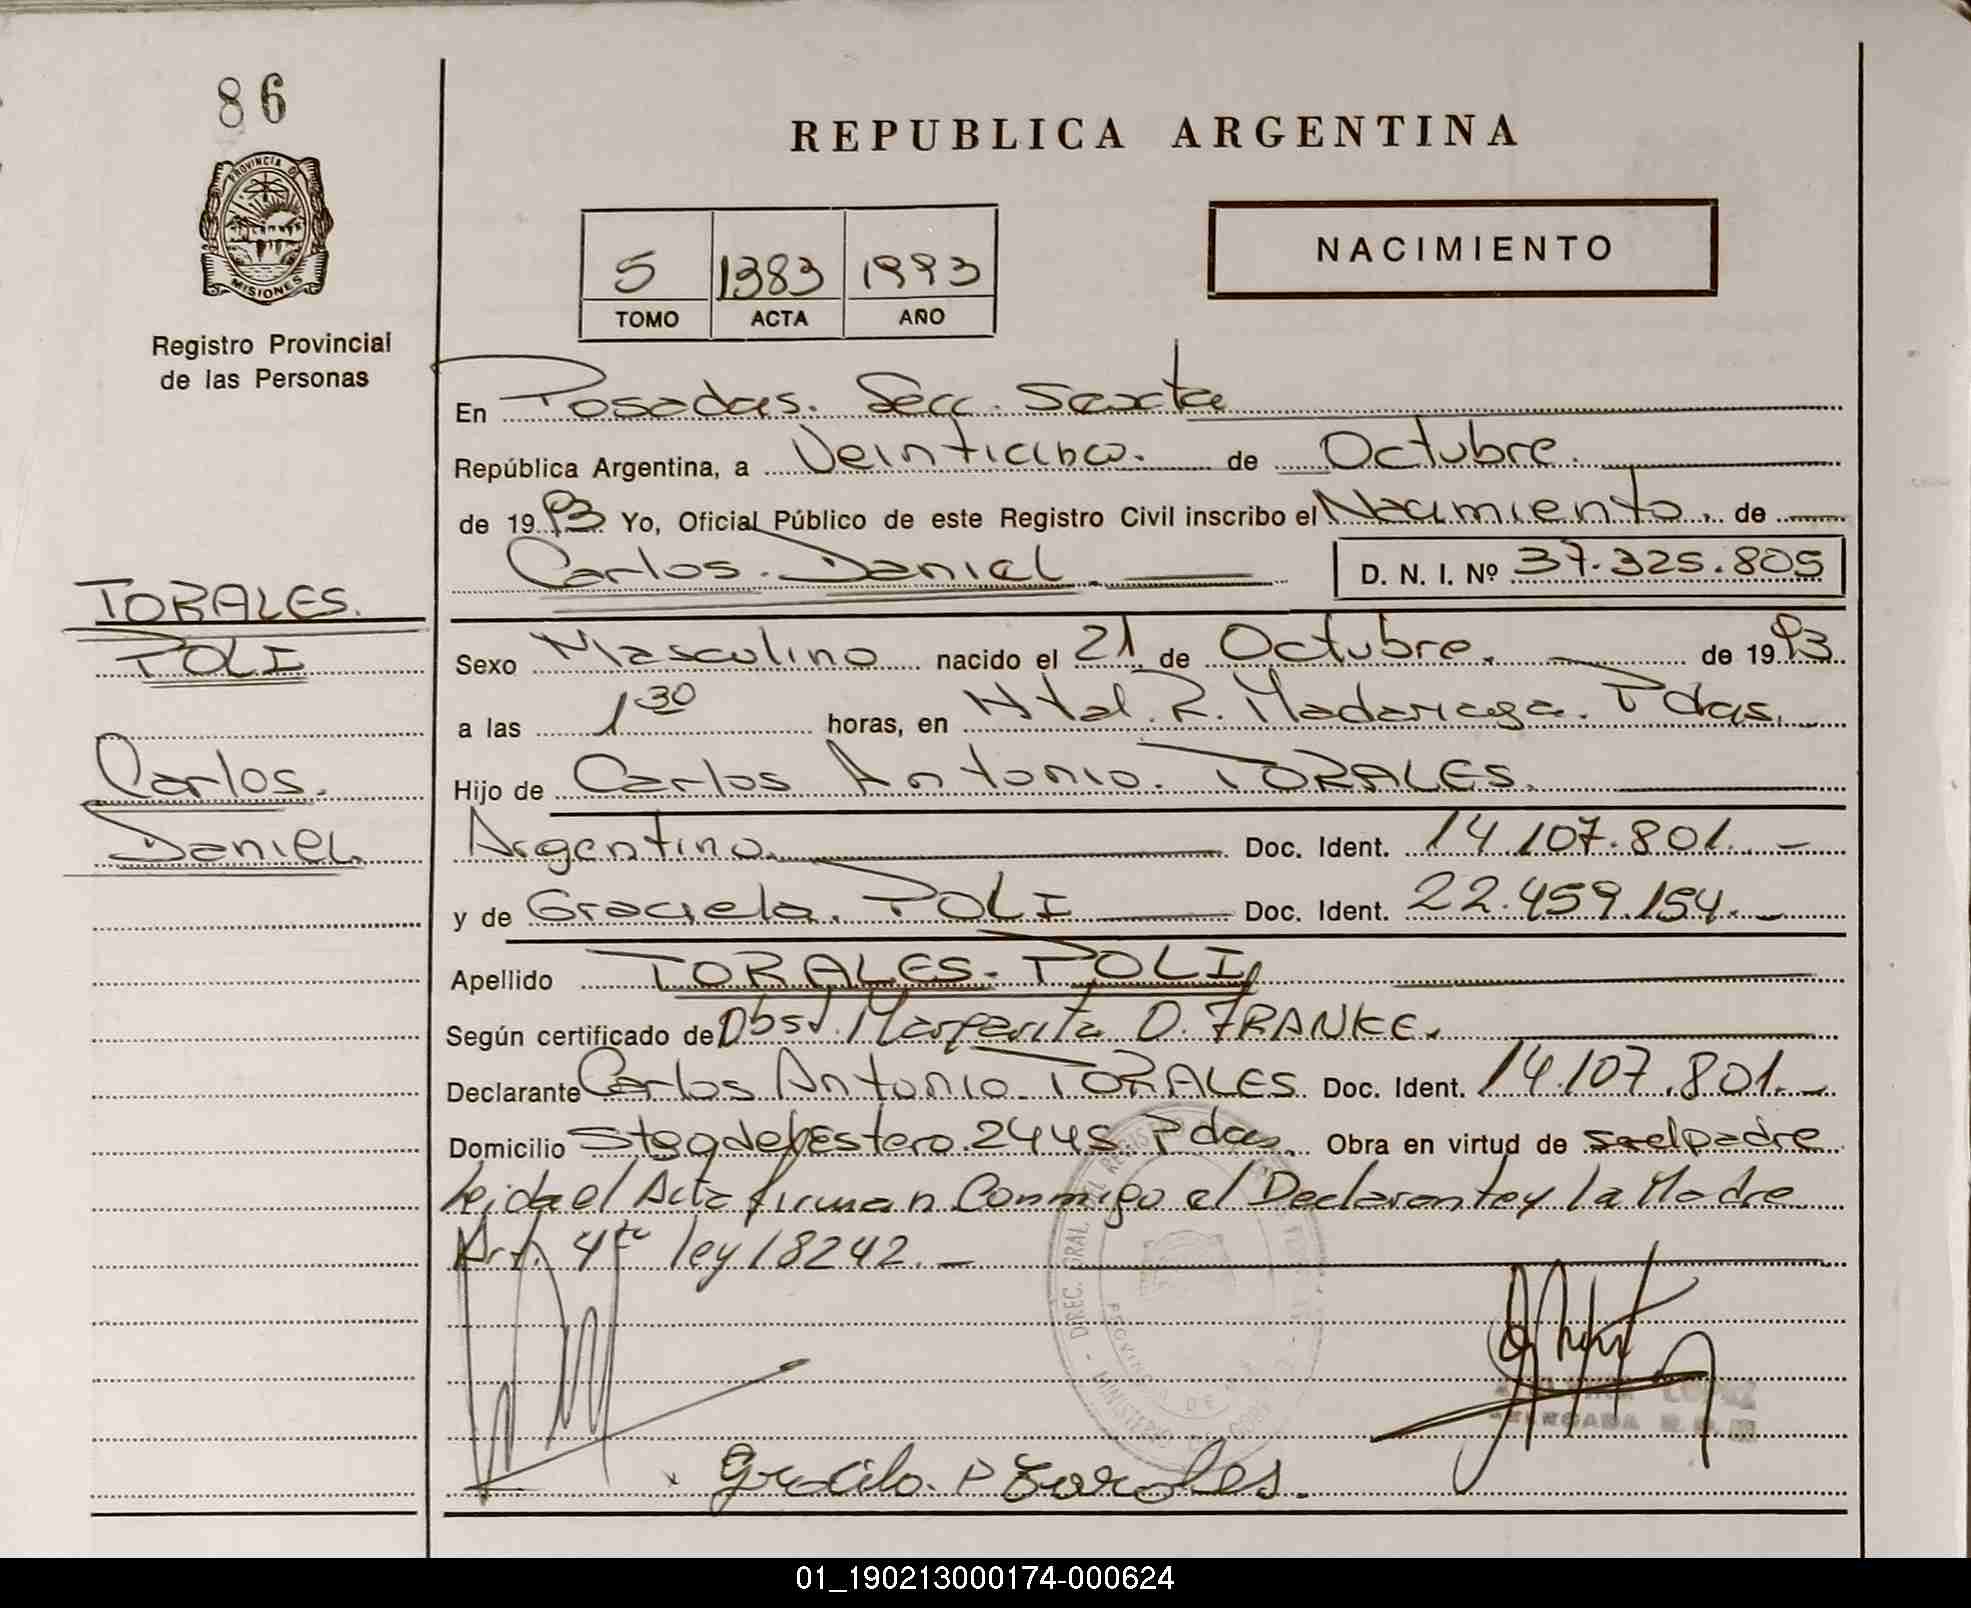 86
PROVINCIA D
MISIONES
Registro Provincial
de las Personas
REPUBLICA ARGENTINA
NACIMIENTO
5 1383 1993
TOMO ACTA AÑO
En Posadas. Secc. Sexta
República Argentina, a Veinticinco. de Octubre.
de 1993 Yo, Oficial Público de este Registro Civil inscribo el Nacimiento. de
Carlos. Daniel D. N. I. Nº 37.325.805
TORALES.
POLI
Carlos.
Daniel
Sexo Masculino nacido el 21 de Octubre. de 1993
a las 1 30 horas, en Htal. R. Madariaga. Pdas.
Hijo de Carlos Antonio. TORALES.
Argentino Doc. Ident. 14.107.801.-
y de Graciela. POLI Doc. Ident. 22.459.154.-
Apellido TORALES-POLI
Según certificado de Obst. Margarita O. FRANKE.
Declarante Carlos Antonio TORALES. Doc. Ident. 14.107.801.-
Domicilio Stgo del Estero. 2445 Pdas. Obra en virtud de ser el padre
Leida el Acta firman Conmigo el Declarante y la Madre
Art. 4to ley 18242.-
DIREC. GRAL.
PROVINCIA DE
MINISTERIO DE
DELEGADA
Graciela. P Torales.
01_190213000174-000624